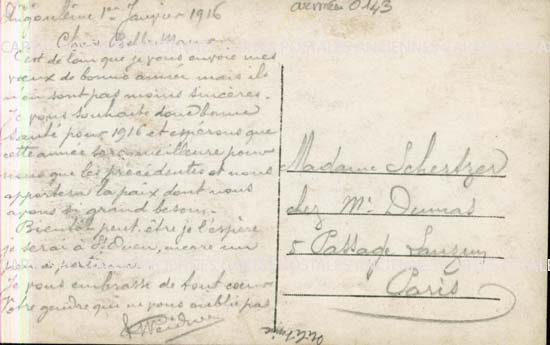 Angoulême 1er Janvier 1916
Chère Belle Maman
C'est de loin que je vous envoie mes
vœux de bonne année mais ils
n'en sont pas moins sincères.
Je vous souhaite donc bonne
santé pour 1916 et espérons que
cette année sera meilleure pour
nous que les précédentes et nous
apportera la paix dont nous
avons si grand besoin.
Bientôt peut être je l'espère
je serai à St Ouen, encore un
peu de patience.
Je vous embrasse de tout cœur
Votre gendre qui ne vous oublie pas
Madame Schertzer
chez Mr Dumas
5 Passage Lauzun
Paris
0143